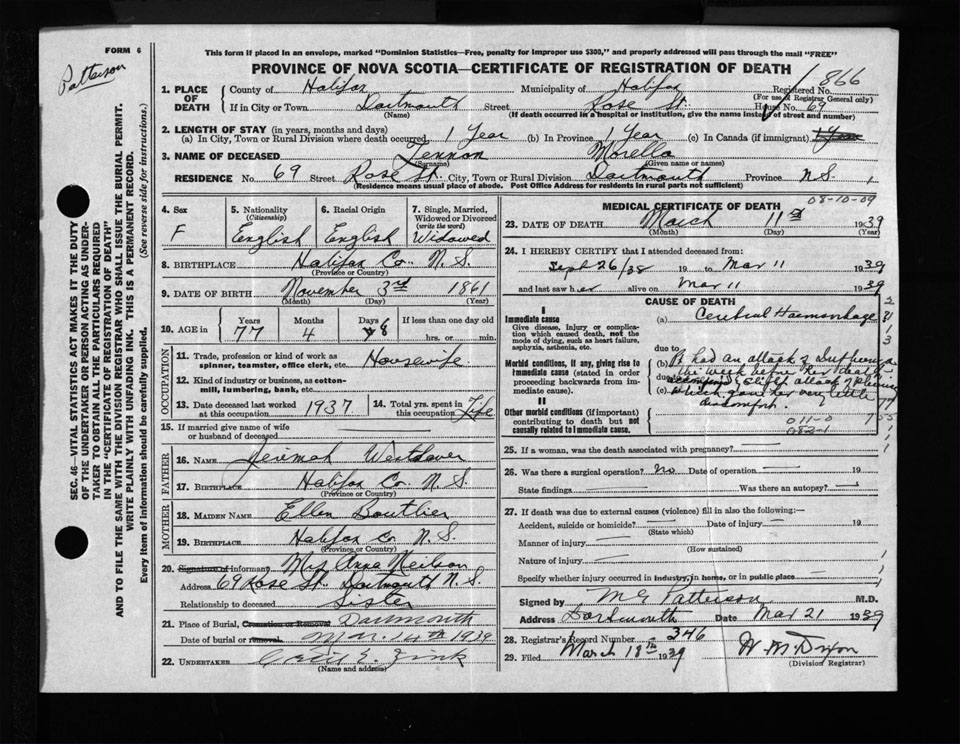 FORM 6
Patterson
This form if placed in an envelope, marked "Dominion Statistics—Free, penalty for improper use $300," and properly addressed will pass through the mail "FREE"
PROVINCE OF NOVA SCOTIA—CERTIFICATE OF REGISTRATION OF DEATH
866
1. PLACE OF DEATH County of Halifax Municipality of Halifax Registered No.
(For use of Registrar General only)
If in City or Town Dartmouth Street Rose St. House No. 69
(Name) (If death occurred in a hospital or institution, give the name instead of street and number)
2. LENGTH OF STAY (in years, months and days)
(a) In City, Town or Rural Division where death occurred 1 Year (b) In Province 1 Year (c) In Canada (if immigrant)
3. NAME OF DECEASED Lennon Morella
(Surname) (Given name or names)
RESIDENCE No. 69 Street Rose St. City, Town or Rural Division Dartmouth Province N.S.
(Residence means usual place of abode. Post Office Address for residents in rural parts not sufficient)
4. Sex F
5. Nationality (Citizenship) English
6. Racial Origin English
7. Single, Married, Widowed or Divorced (write the word) Widowed
8. BIRTHPLACE Halifax Co. N.S.
(Province or Country)
9. DATE OF BIRTH November 3rd 1861
(Month) (Day) (Year)
10. AGE in Years 77 Months 4 Days 8 If less than one day old hrs. or min.
OCCUPATION
11. Trade, profession or kind of work as spinner, teamster, office clerk, etc. Housewife
12. Kind of industry or business, as cotton-mill, lumbering, bank, etc.
13. Date deceased last worked at this occupation 1937
14. Total yrs. spent in this occupation Life
15. If married give name of wife or husband of deceased
FATHER
16. NAME Jerimah Westhaver
17. BIRTHPLACE Halifax Co. N.S.
(Province or Country)
MOTHER
18. MAIDEN NAME Ellen Boutlier
19. BIRTHPLACE Halifax Co. N.S.
(Province or Country)
20. Signature of informant Mrs Anna Neilson
Address 69 Rose St. Dartmouth N.S.
Relationship to deceased Sister
21. Place of Burial, Cremation or Removal Dartmouth
Date of burial or removal Mar. 14th 1939
22. UNDERTAKER
(Name and address)
MEDICAL CERTIFICATE OF DEATH 08-10-09
23. DATE OF DEATH March 11th 1939
(Month) (Day) (Year)
24. I HEREBY CERTIFY that I attended deceased from:
Sept 26/38 19 to Mar 11 1939
and last saw her alive on Mar 11 1939
CAUSE OF DEATH
I
Immediate cause (a) Cerebral Haemorrhage
Give disease, injury or complication which caused death, not the mode of dying, such as heart failure, asphyxia, asthenia, etc.
due to
Morbid conditions, if any, giving rise to immediate cause (stated in order proceeding backwards from immediate cause).
(b) had an attack of
the week before her death
due to
(c) which gave her very little
discomfort.
II
Other morbid conditions (if important) contributing to death but not causally related to immediate cause.
011-0
082-1
25. If a woman, was the death associated with pregnancy?
26. Was there a surgical operation? No Date of operation 19
State findings Was there an autopsy?
27. If death was due to external causes (violence) fill in also the following:—
Accident, suicide or homicide? Date of injury 19
(State which)
Manner of injury
(How sustained)
Nature of injury
Specify whether injury occurred in industry, in home, or in public place
Signed by M G Patterson M.D.
Address Dartmouth Date Mar 21 1939
28. Registrar's Record Number 346
29. Filed March 18th 1939 W. M. Dixon
(Division Registrar)
SEC. 46—VITAL STATISTICS ACT MAKES IT THE DUTY
OF THE UNDERTAKER OR PERSON ACTING AS UNDER-
TAKER TO OBTAIN ALL THE PARTICULARS REQUIRED
IN THE "CERTIFICATE OF REGISTRATION OF DEATH"
AND TO FILE THE SAME WITH THE DIVISION REGISTRAR WHO SHALL ISSUE THE BURIAL PERMIT.
WRITE PLAINLY WITH UNFADING INK. THIS IS A PERMANENT RECORD.
Every item of information should be carefully supplied. (See reverse side for instructions.)